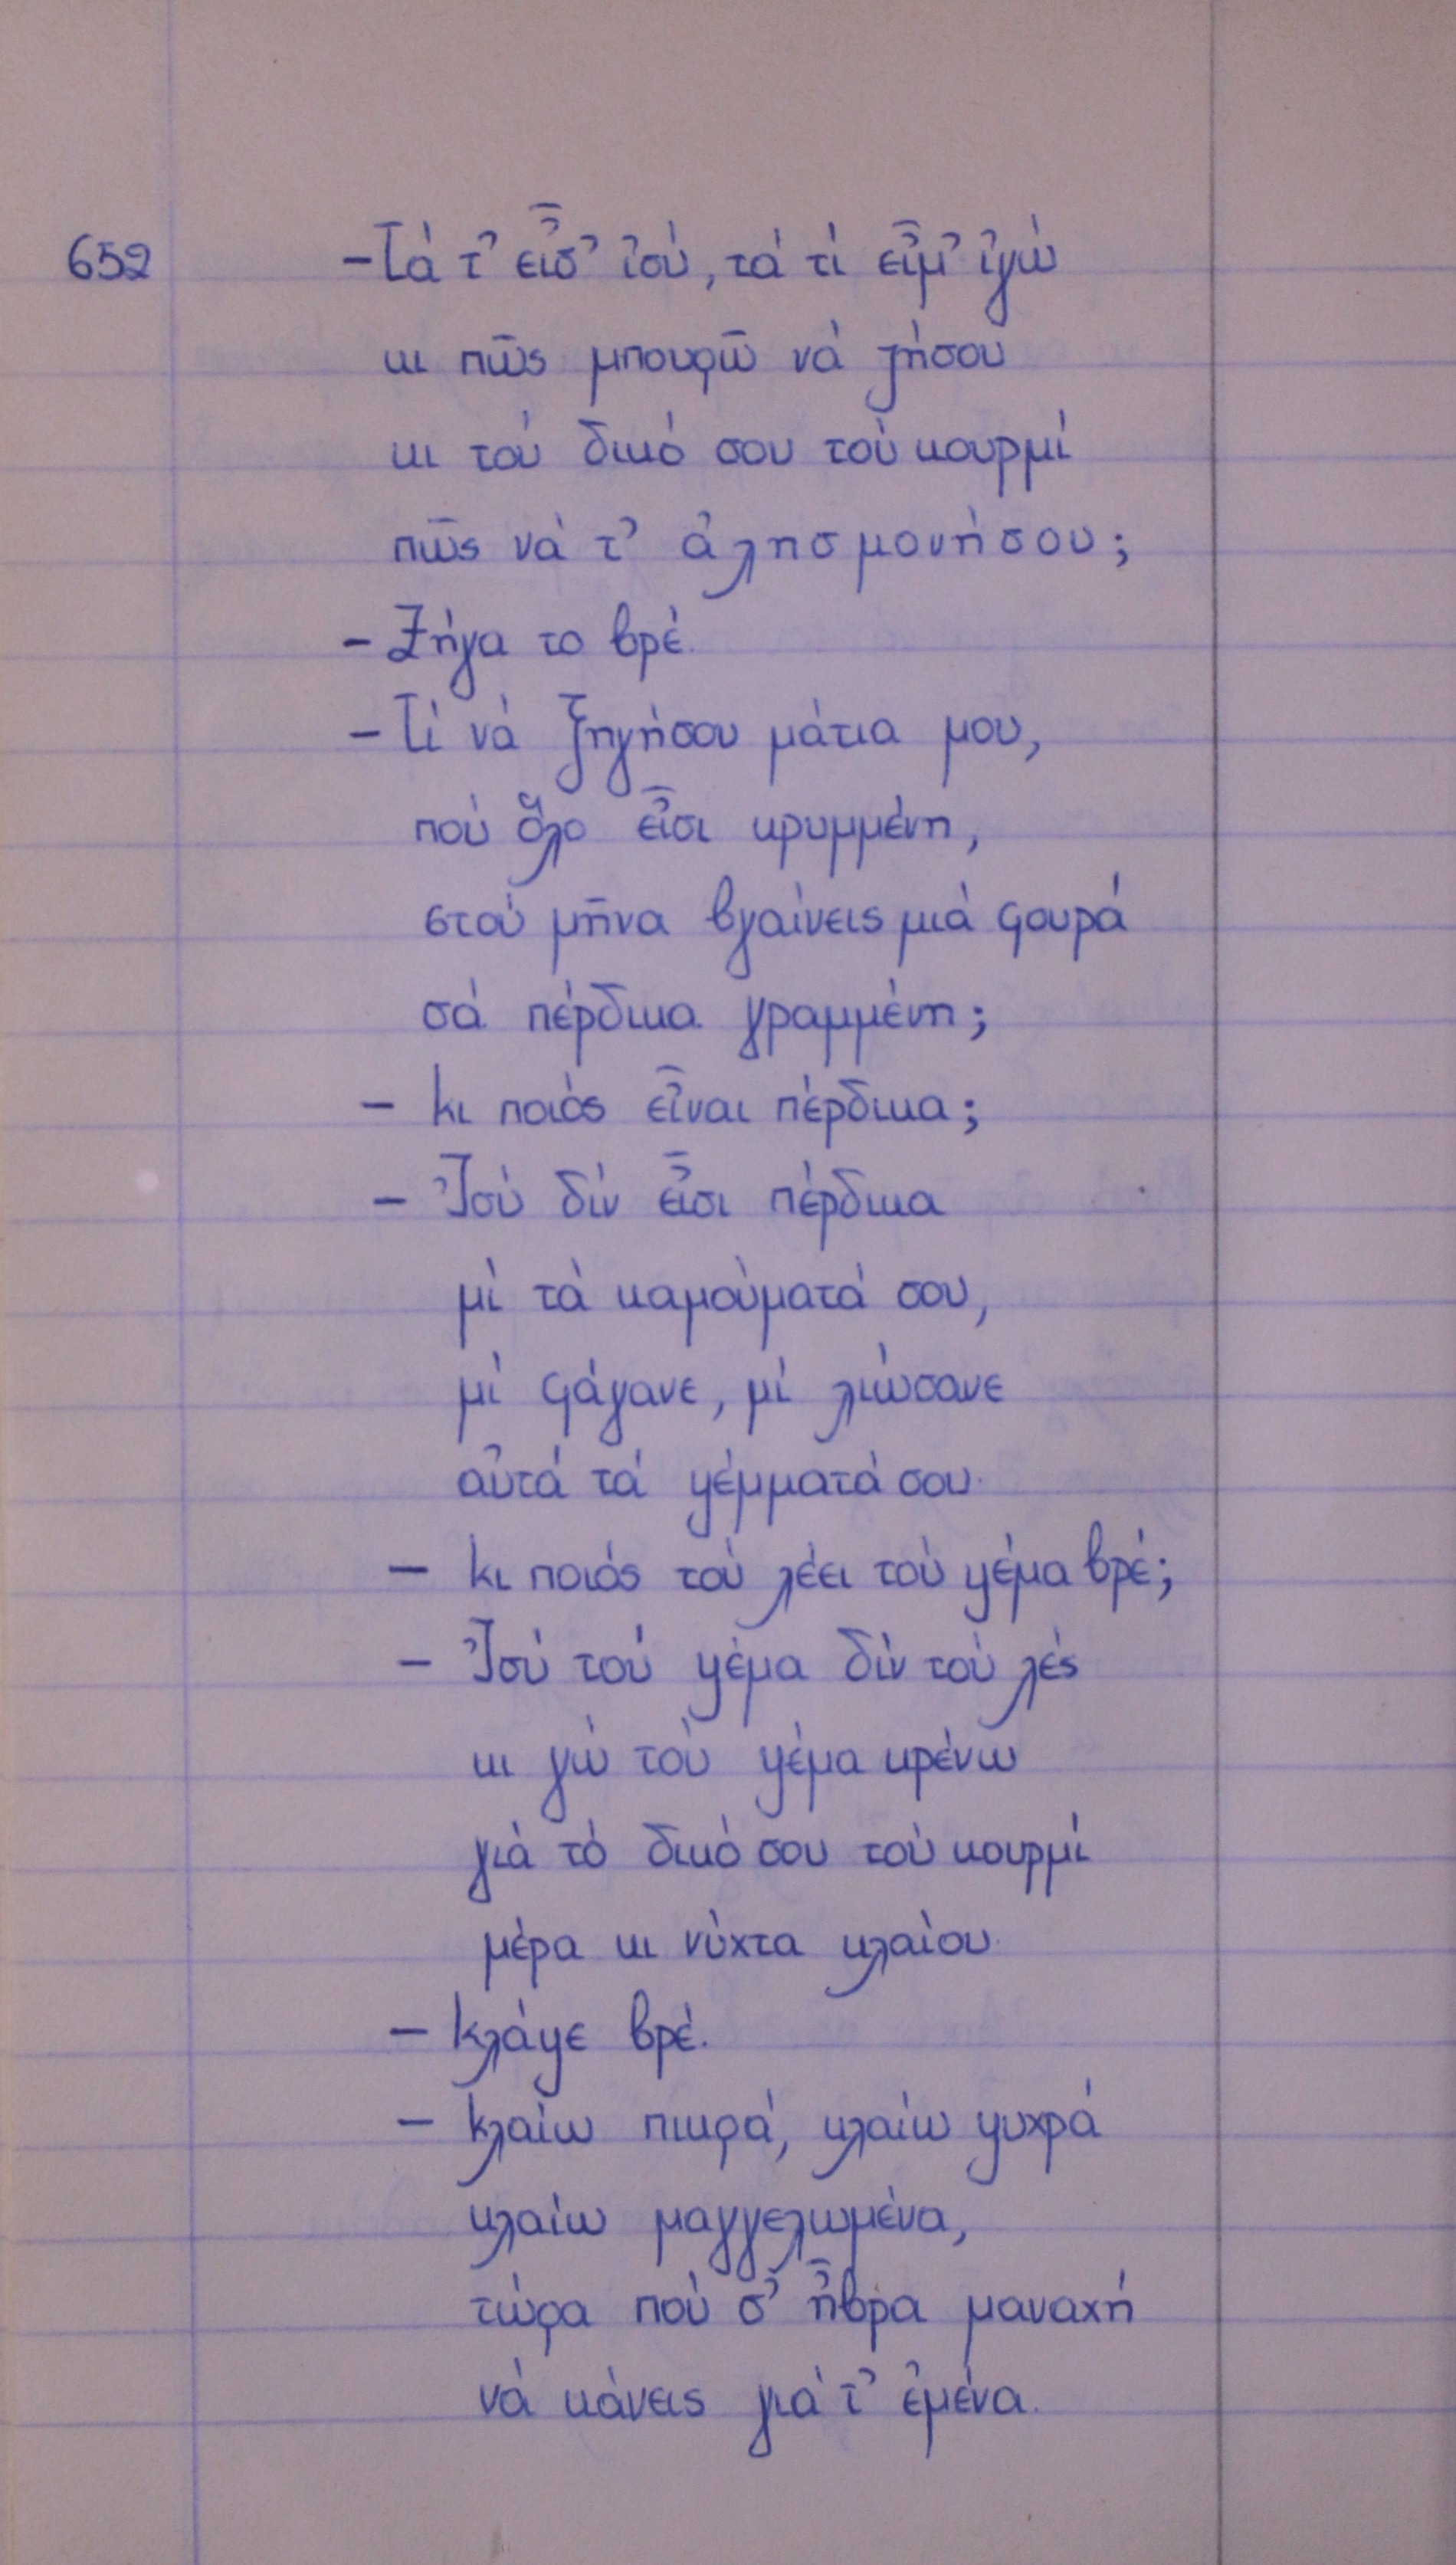 652 -Τά τ' εἶσ' ἰσύ, τά τί εἶμ' ἰγώ
κι πῶς μπουρῶ νά ζήσου
κι τού δικό σου τού κουρμί
πῶς νά τ' ἀλησμονήσου;
- Ξήγα το βρέ.
- Τί νά ξηγήσου μάτια μου,
πού ὅλο εἶσι κρυμμένη,
στού μῆνα βγαίνεις μιά φουρά
σά πέρδικα γραμμένη;
- κι ποιός εἶναι πέρδικα;
- Ἰσύ δίν εἶσι πέρδικα
μί τά καμούματά σου,
μί φάγανε, μί λιώσανε
αὐτά τά ψέμματά σου.
- κι ποιός τού λέει τού ψέμα βρέ;
- Ἰσύ τού ψέμα δίν τού λές
κι γώ τού ψέμα κρένω
γιά τό δικό σου τού κουρμί
μέρα κι νύχτα κλαίου.
- κλάψε βρέ.
- κλαίω πικρά, κλαίω ψυχρά
κλαίω μαγγελωμένα,
τώρα πού σ' ἦβρα μαναχή
νά κάνεις γιά τ' ἐμένα.